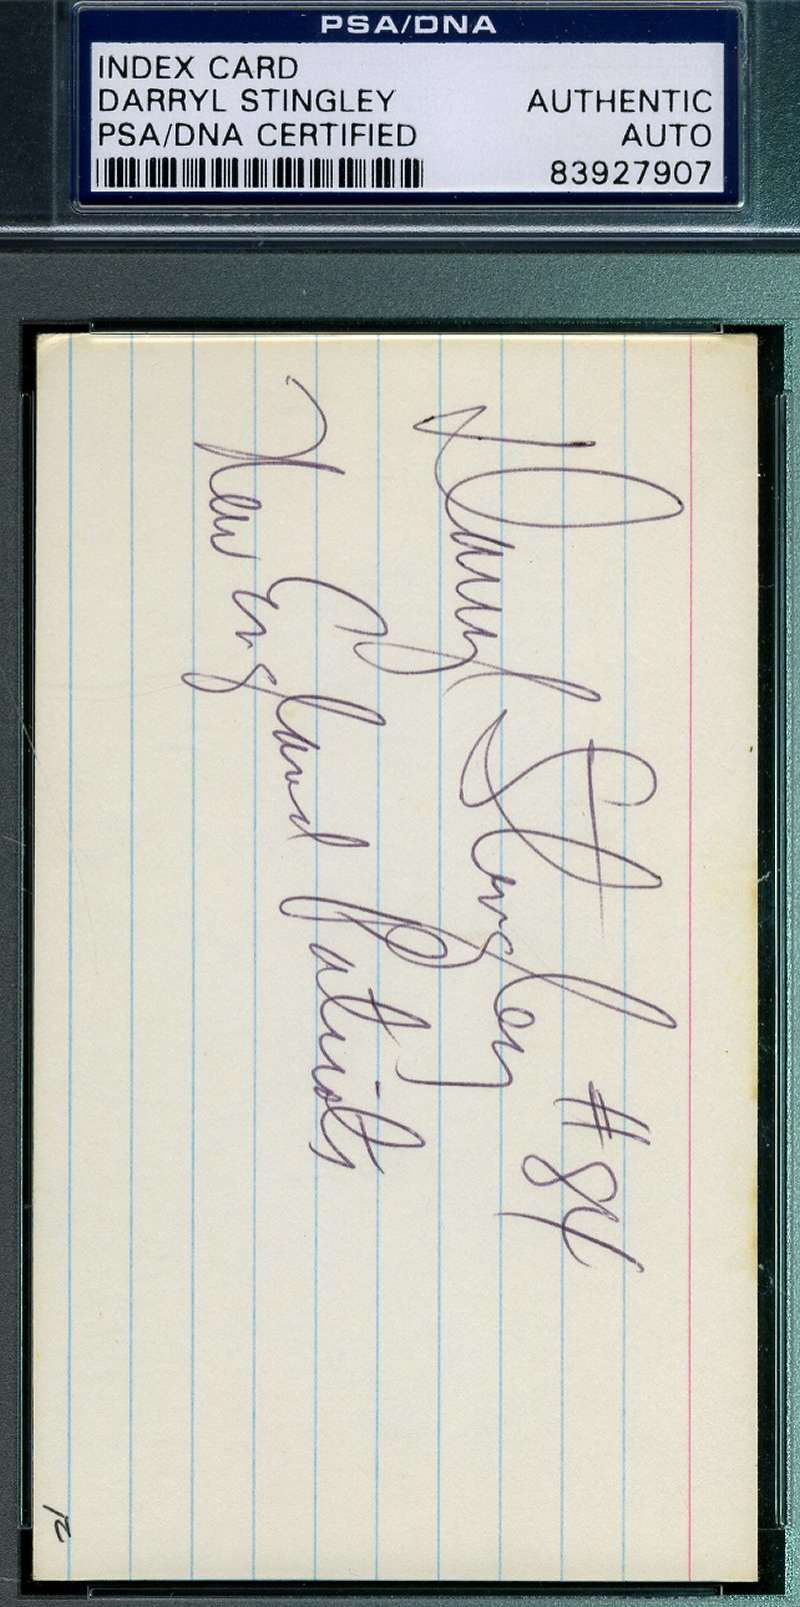 PSA/DNA
INDEX CARD
DARRYL STINGLEY
PSA/DNA CERTIFIED
AUTHENTIC
AUTO
83927907
Darryl Stingley #84
New England Patriots
12